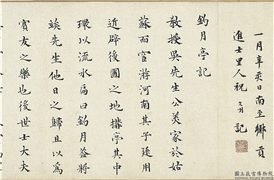 一月辛未日南至鄉貢
進士里人祝允明記
釣月亭記
教授吳先生公美家於姑
蘇而官游河南其子廷用
近辟後圃之地搆亭其中
環以流水扁曰釣月盖將
竢先生他日之歸且以為
賓友之樂也後世士大夫
國立故宮博物院